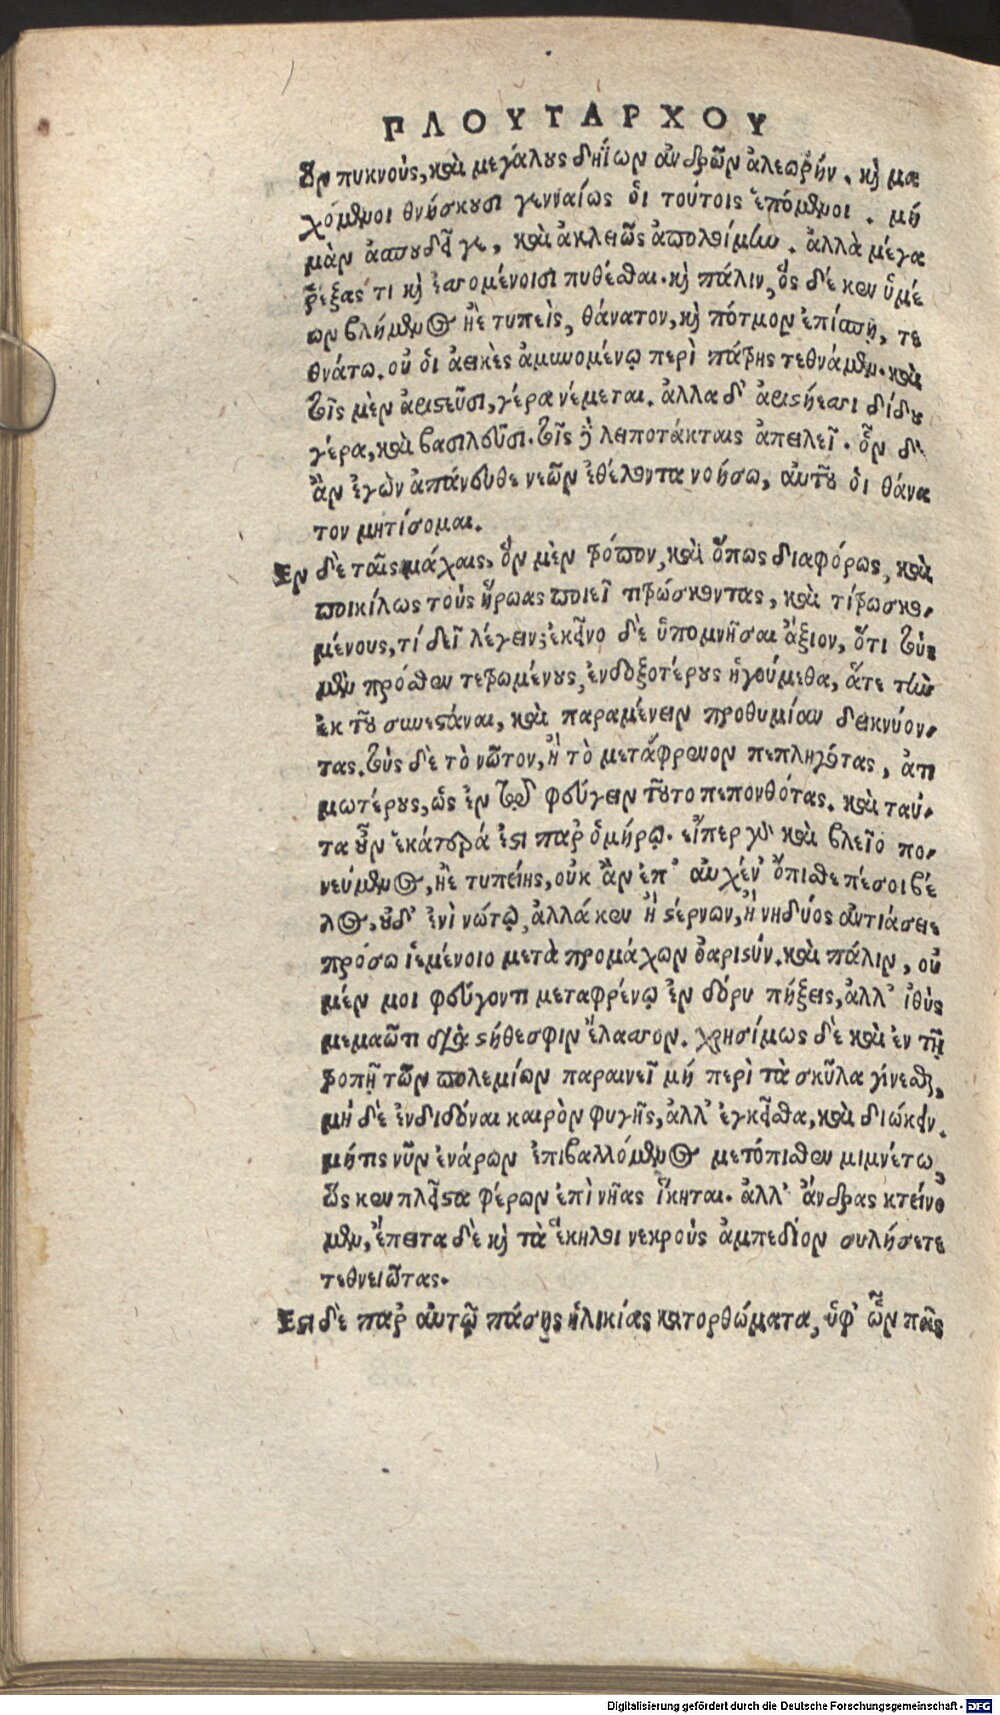 ΠΛΟΥΤΑΡΧΟΥ
ουν πυκνοὺς, καὶ μεγάλους δηΐων ἀνδρῶν ἀλεωρήν. κὶ μα
χόμενοι θνήσκουσι γενναίως ὁι τούτοις ἑπόμενοι. μὴ
μὰν ἀσπουδεί γε, καὶ ἀκλειῶς ἀπολοίμην. ἀλλὰ μέγα
ῥέξας τι κὶ ἐσσομένοισι πυθέσθαι. κὶ πάλιν, ὅς δέ κεν ὑμέ
ων βλήμενος ἠὲ τυπεὶς, θάνατον, κὶ πότμον ἐπίσπῃ, τε
θνάτω. οὔ ὁι ἀεικὲς ἀμυνομένῳ περὶ πάτρης τεθνάμεν. καὶ
τοῖς μὲν ἀριστεῦσι, γέρα νέμεται. ἄλλα δ' ἀριστήεσσι δίδου
γέρα, καὶ βασιλεῦσι. τοῖς δὲ λειποτάκταις ἀπειλεῖ. ὃν δ'
ἂν ἐγὼν ἀπάνευθε νεῶν ἐθέλοντα νοήσω, αὐτοῦ ὁι θάνα
τον μητίσομαι.
Εν δὲ ταῖς μάχαις, ὃν μὲν τρόπον, καὶ ὅπως διαφόρως, καὶ
ποικίλως τοὺς ἥρωας ποιεῖ τιτρώσκοντας, καὶ τιτρωσκο-
μένους, τί δεῖ λέγειν; ἐκεῖνο δὲ ὑπομνῆσαι ἄξιον, ὅτι τοὺς
μὲν πρόσθεν τετρωμένους, ἐνδοξοτέρους ἡγούμεθα, ἅτε τὴν
ἐκ τοῦ συνεστάναι, καὶ παραμένειν προθυμίαν δεικνύον-
τας. τοὺς δὲ τὸ νῶτον, ἢ τὸ μετάφρενον πεπληγότας, ἀτι
μωτέρους, ὡς ἐν τῷ φεύγειν τοῦτο πεπονθότας. καὶ ταύ-
τα οὖν ἑκάτερά ἐστι παρ' ὁμήρῳ. εἴπερ γὰρ καὶ βλεῖο πο-
νεύμενος, ἠὲ τυπείης, οὐκ ἂν ἐπ' αὐχέν' ὄπισθε πέσοι βέ
λος, οὐδ' ἐνὶ νώτῳ, ἀλλά κεν ἢ στέρνων, ἢ νηδύος ἀντιάσειε
πρόσω ἱεμένοιο μετὰ προμάχων ὀαριστύν. καὶ πάλιν, οὐ
μέν μοι φεύγοντι μεταφρένῳ ἐν δόρυ πήξεις, ἀλλ' ἰθὺς
μεμαῶτι διὰ στήθεσφιν ἔλασσον. χρησίμως δὲ καὶ ἐν τῇ
τροπῇ τῶν πολεμίων παραινεῖ μὴ περὶ τὰ σκῦλα γίνεσθαι,
μὴ δὲ ἐνδιδόναι καιρὸν φυγῆς, ἀλλ' ἐγκεῖσθαι, καὶ διώκειν.
μήτις νῦν ἐνάρων ἐπιβαλλόμενος μετόπισθεν μιμνέτω,
ὥς κεν πλεῖστα φέρων ἐπὶ νῆας ἵκηται. ἀλλ' ἄνδρας κτείνο
μεν, ἔπειτα δὲ κὶ τὰ ἕκηλοι νεκροὺς ἀμπεδίον συλήσετε
τεθνειῶτας.
Εστι δὲ παρ' αὐτῷ πάσης ἡλικίας κατορθώματα, ὑφ' ὧν πᾶς
Digitalisierung gefördert durch die Deutsche Forschungsgemeinschaft - DFG